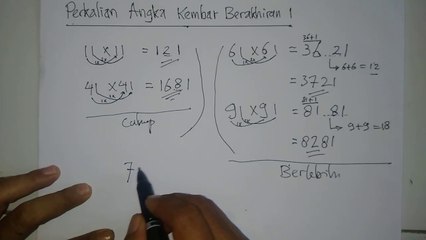 Perkalian Angka Kembar Berakhiran 1
11 x 11 = 121
41 x 41 = 1681
Cukup
61 x 61 = 36..21
36+1
6+6 = 12
= 3721
91 x 91 = 81..81
81+1
9+9 = 18
= 8281
Berlebih
7